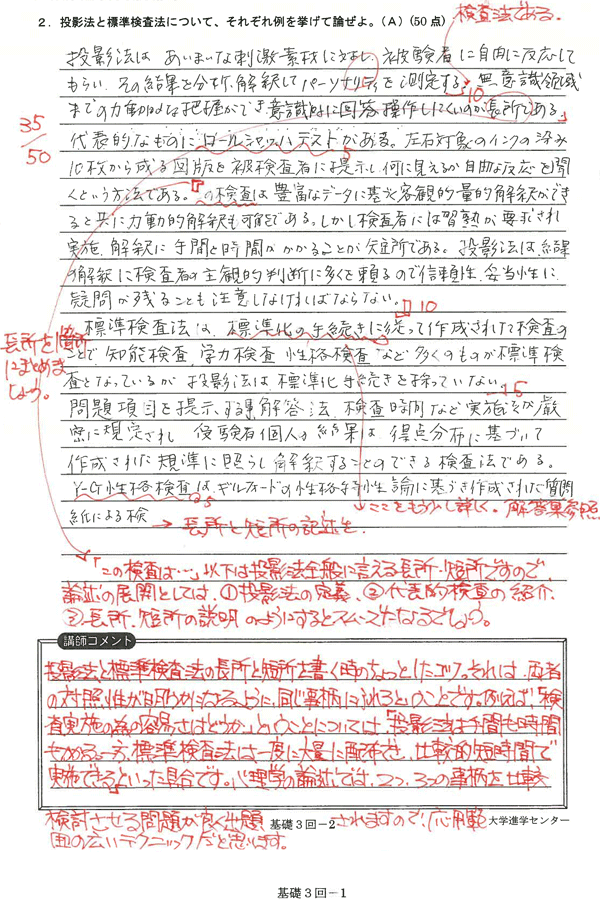 2．投影法と標準検査法について、それぞれ例を挙げて論ぜよ。（A）（50点）
検査法である。
投影法は あいまいな刺激素材に対し、被験者に自由に反応して
もらい、その結果を分析、解釈してパーソナリティを測定する。無意識領域
10
までの力動的な把握ができ意識的に回答操作しにくいのが長所である。
35
50
代表的なものにロールシャッハ・テストがある。左右対象のインクの染み
5
10枚から成る図版を被検査者に提示し何に見えるか自由な反応を聞
くという方法である。この検査は豊富なデータに基づき客観的・量的解釈ができ
ると共に力動的解釈も可能である。しかし検査者には習熟が要求され
実施、解釈に手間と時間がかかることが短所である。投影法は結果
の解釈に検査者の主観的判断に多くを頼るので信頼性、妥当性に
疑問が残ることも注意しなければならない。
10
長所を箇所
にまとめま
しょう。
標準検査法は、標準化の手続きに従って作成された検査の
ことで、知能検査、学力検査、性格検査など多くのものが標準検
査となっているが 投影法は標準化手続きを採っていない。
5
問題項目を提示、解答法、検査時間など実施法が厳
密に規定され 被験者個人の結果は、得点分布に基づいて
作成された規準に照らし解釈することのできる検査法である。
Y-G性格検査は、ギルフォードの性格特性論に基づき作成された質問
5
ここをもう少し詳しく。解答集参照
紙による検
→長所と短所の記述を。
「この検査は…」以下は投影法全般に言える長所・短所ですので、
論述の展開としては、①投影法の定義、②代表的検査の紹介、
③長所、短所の説明 のようにするとスムーズになるでしょう。
講師コメント
投影法と標準検査法の長所と短所を書く時のちょっとしたコツ。それは、両者
の対照性が明らかになるように、同じ事柄にふれるということです。例えば、「検
査実施の為の容易さはどうか」ということについては、「投影法は手間も時間
もかかる。一方、標準検査法は一度に大量に配布でき、比較的短時間で
実施できる」といった具合です。心理学の論述では、2つ、3つの事柄を比較
検討させる問題が良く出題されますので、応用範
囲の広いテクニックだと思います。
基礎3回－2
大学進学センター
基礎3回－1